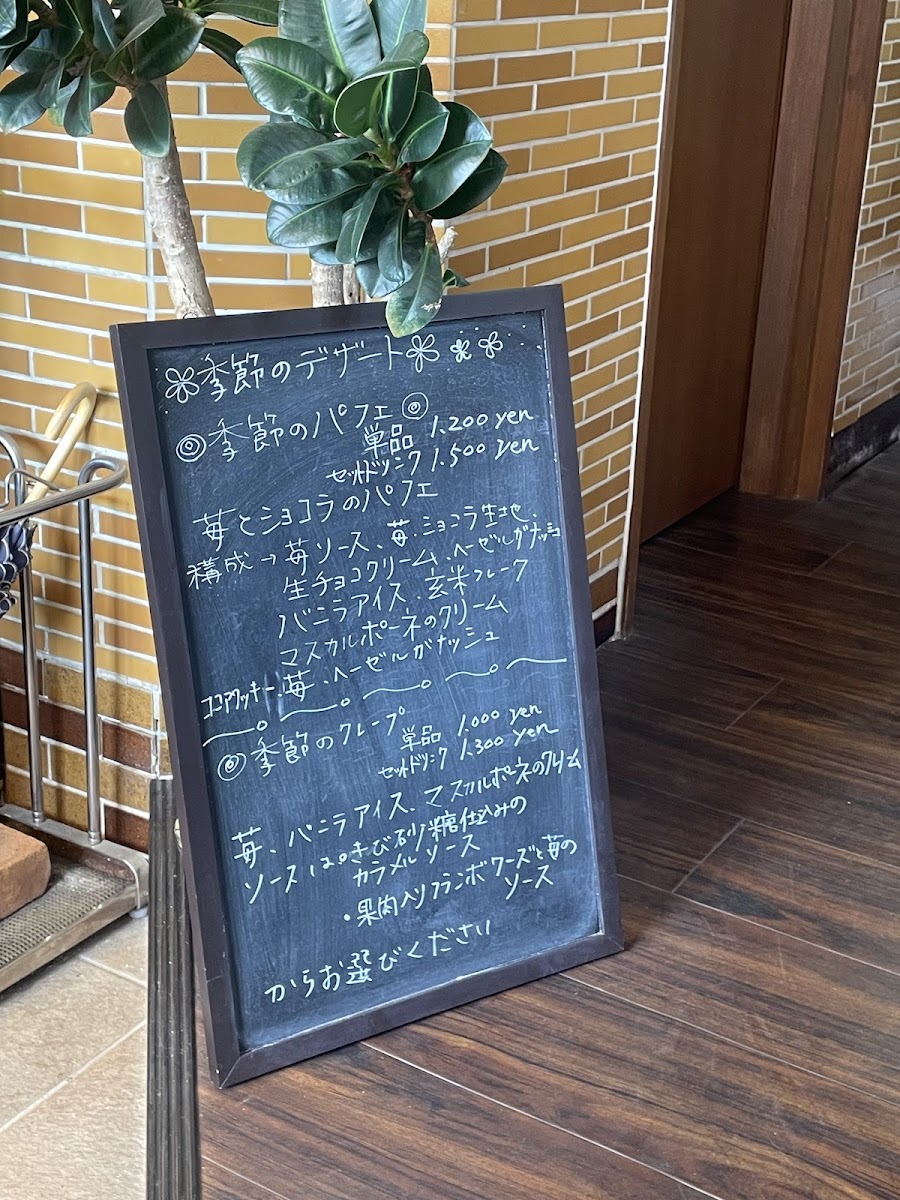 季節のデザート
◎季節のパフェ◎
単品 1.200 yen
セットドリンク 1.500 yen
苺とショコラのパフェ
構成→苺ソース、苺・ショコラ生地、
生チョコクリーム・ヘーゼルガナッシュ
バニラアイス・玄米フレーク
マスカルポーネのクリーム
ココアクッキー・苺・ヘーゼルガナッシュ
◎季節のクレープ
単品 1.000 yen
セットドリンク 1.300 yen
苺、バニラアイス、マスカルポーネのクリーム
ソースは・きび砂糖仕込みの
カラメルソース
・果肉入りフランボワーズと苺の
ソース
からお選びください